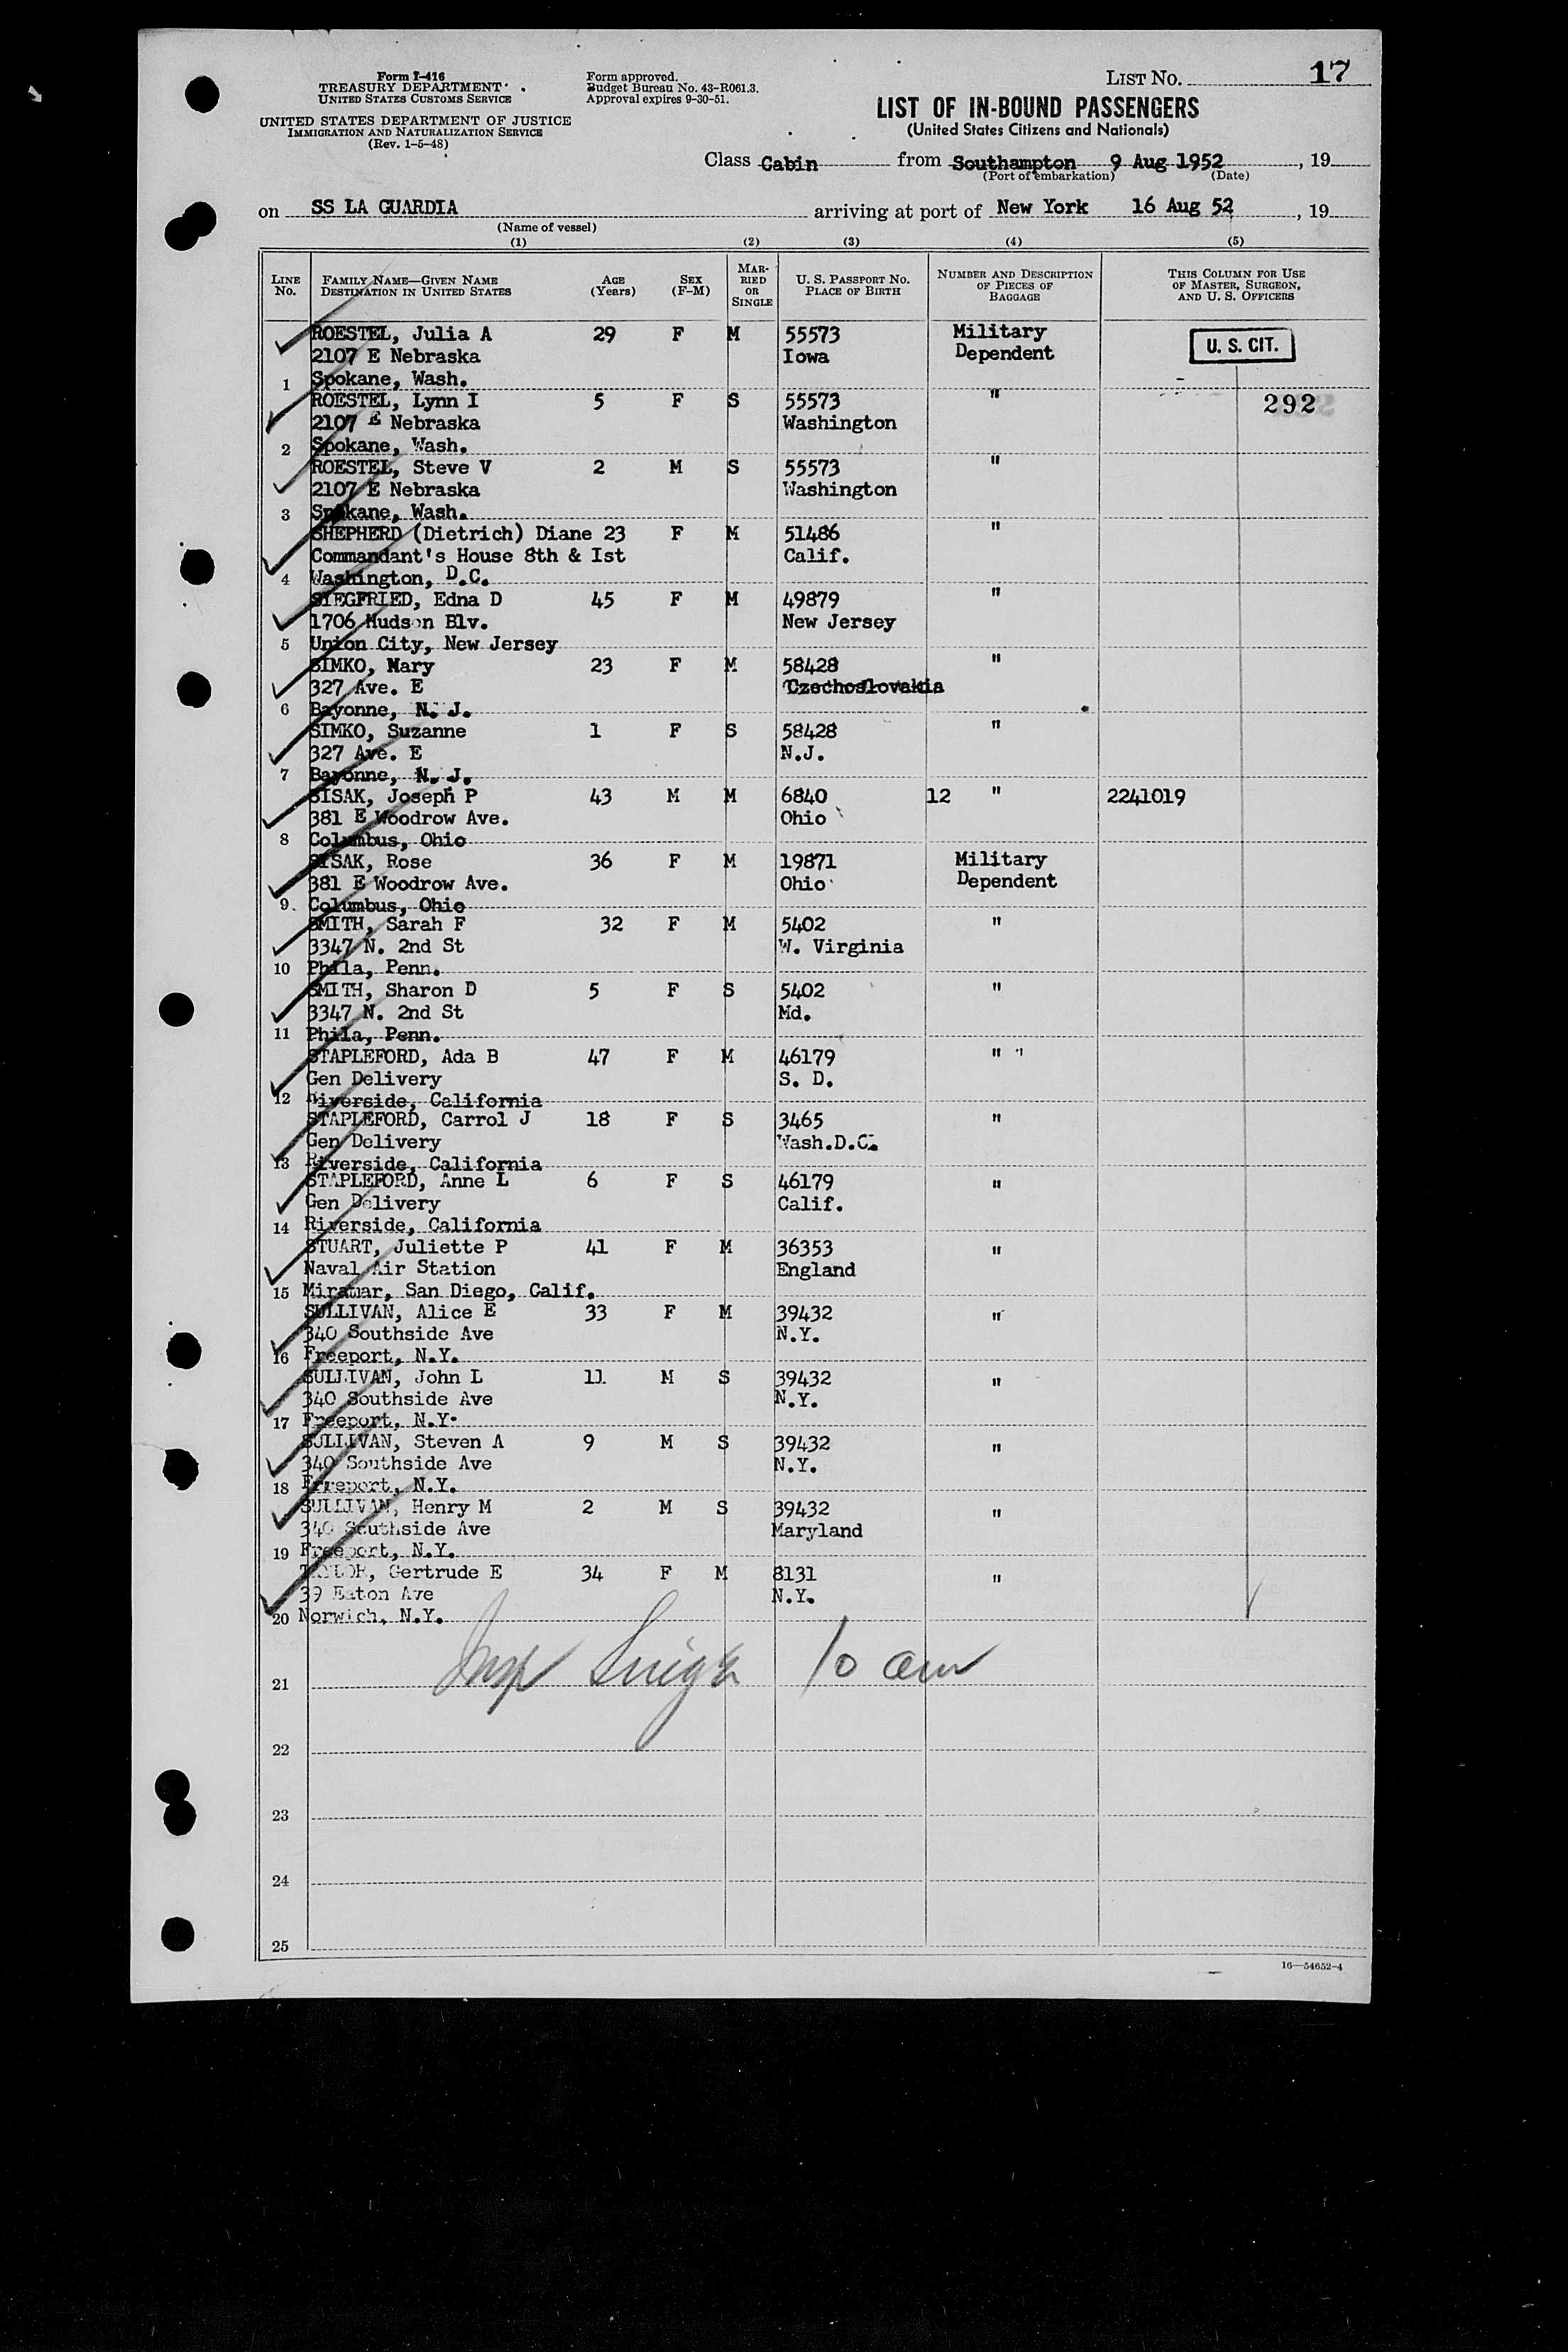 Form I-416
TREASURY DEPARTMENT
UNITED STATES CUSTOMS SERVICE
UNITED STATES DEPARTMENT OF JUSTICE
IMMIGRATION AND NATURALIZATION SERVICE
(Rev. 1-5-48)
Form approved.
Budget Bureau No. 43-R061.3.
Approval expires 9-30-51.
LIST NO. 17
LIST OF IN-BOUND PASSENGERS
(United States Citizens and Nationals)
Class Cabin from Southampton 9 Aug 1952, 19
(Port of embarkation) (Date)
on SS LA GUARDIA arriving at port of New York 16 Aug 52, 19
(Name of vessel)
(1) (2) (3) (4) (5)
LINE No. FAMILY NAME—GIVEN NAME DESTINATION IN UNITED STATES AGE (Years) SEX (F-M) MARRIED OR SINGLE U. S. PASSPORT NO. PLACE OF BIRTH NUMBER AND DESCRIPTION OF PIECES OF BAGGAGE THIS COLUMN FOR USE OF MASTER, SURGEON, AND U. S. OFFICERS
ROESTEL, Julia A 29 F M 55573 Military U. S. CIT.
2107 E Nebraska Iowa Dependent
1 Spokane, Wash.
ROESTEL, Lynn I 5 F S 55573 " 292
2107 E Nebraska Washington
2 Spokane, Wash.
ROESTEL, Steve V 2 M S 55573 "
2107 E Nebraska Washington
3 Spokane, Wash.
SHEPHERD (Dietrich) Diane 23 F M 51486 "
Commandant's House 8th & Ist Calif.
4 Washington, D.C.
SIEGFRIED, Edna D 45 F M 49879 "
1706 Hudson Blv. New Jersey
5 Union City, New Jersey
SIMKO, Mary 23 F M 58428 "
327 Ave. E Czechoslovakia
6 Bayonne, N. J.
SIMKO, Suzanne 1 F S 58428 "
327 Ave. E N.J.
7 Bayonne, N. J.
SISAK, Joseph P 43 M M 6840 12 " 2241019
381 E Woodrow Ave. Ohio
8 Columbus, Ohio
SISAK, Rose 36 F M 19871 Military
381 E Woodrow Ave. Ohio Dependent
9 Columbus, Ohio
SMITH, Sarah F 32 F M 5402 "
3347 N. 2nd St W. Virginia
10 Phila, Penn.
SMITH, Sharon D 5 F S 5402 "
3347 N. 2nd St Md.
11 Phila, Penn.
STAPLEFORD, Ada B 47 F M 46179 "
Gen Delivery S. D.
12 Riverside, California
STAPLEFORD, Carrol J 18 F S 3465 "
Gen Delivery Wash.D.C.
13 Riverside, California
STAPLEFORD, Anne L 6 F S 46179 "
Gen Delivery Calif.
14 Riverside, California
STUART, Juliette P 41 F M 36353 "
Naval Air Station England
15 Miramar, San Diego, Calif.
SULLIVAN, Alice E 33 F M 39432 "
340 Southside Ave N.Y.
16 Freeport, N.Y.
SULLIVAN, John L 11 M S 39432 "
340 Southside Ave N.Y.
17 Freeport, N.Y.
SULLIVAN, Steven A 9 M S 39432 "
340 Southside Ave N.Y.
18 Freeport, N.Y.
SULLIVAN, Henry M 2 M S 39432 "
340 Southside Ave Maryland
19 Freeport, N.Y.
TAYLOR, Gertrude E 34 F M 8131 "
39 Eaton Ave N.Y.
20 Norwich, N.Y.
10 am
21
22
23
24
25
16—54652-4